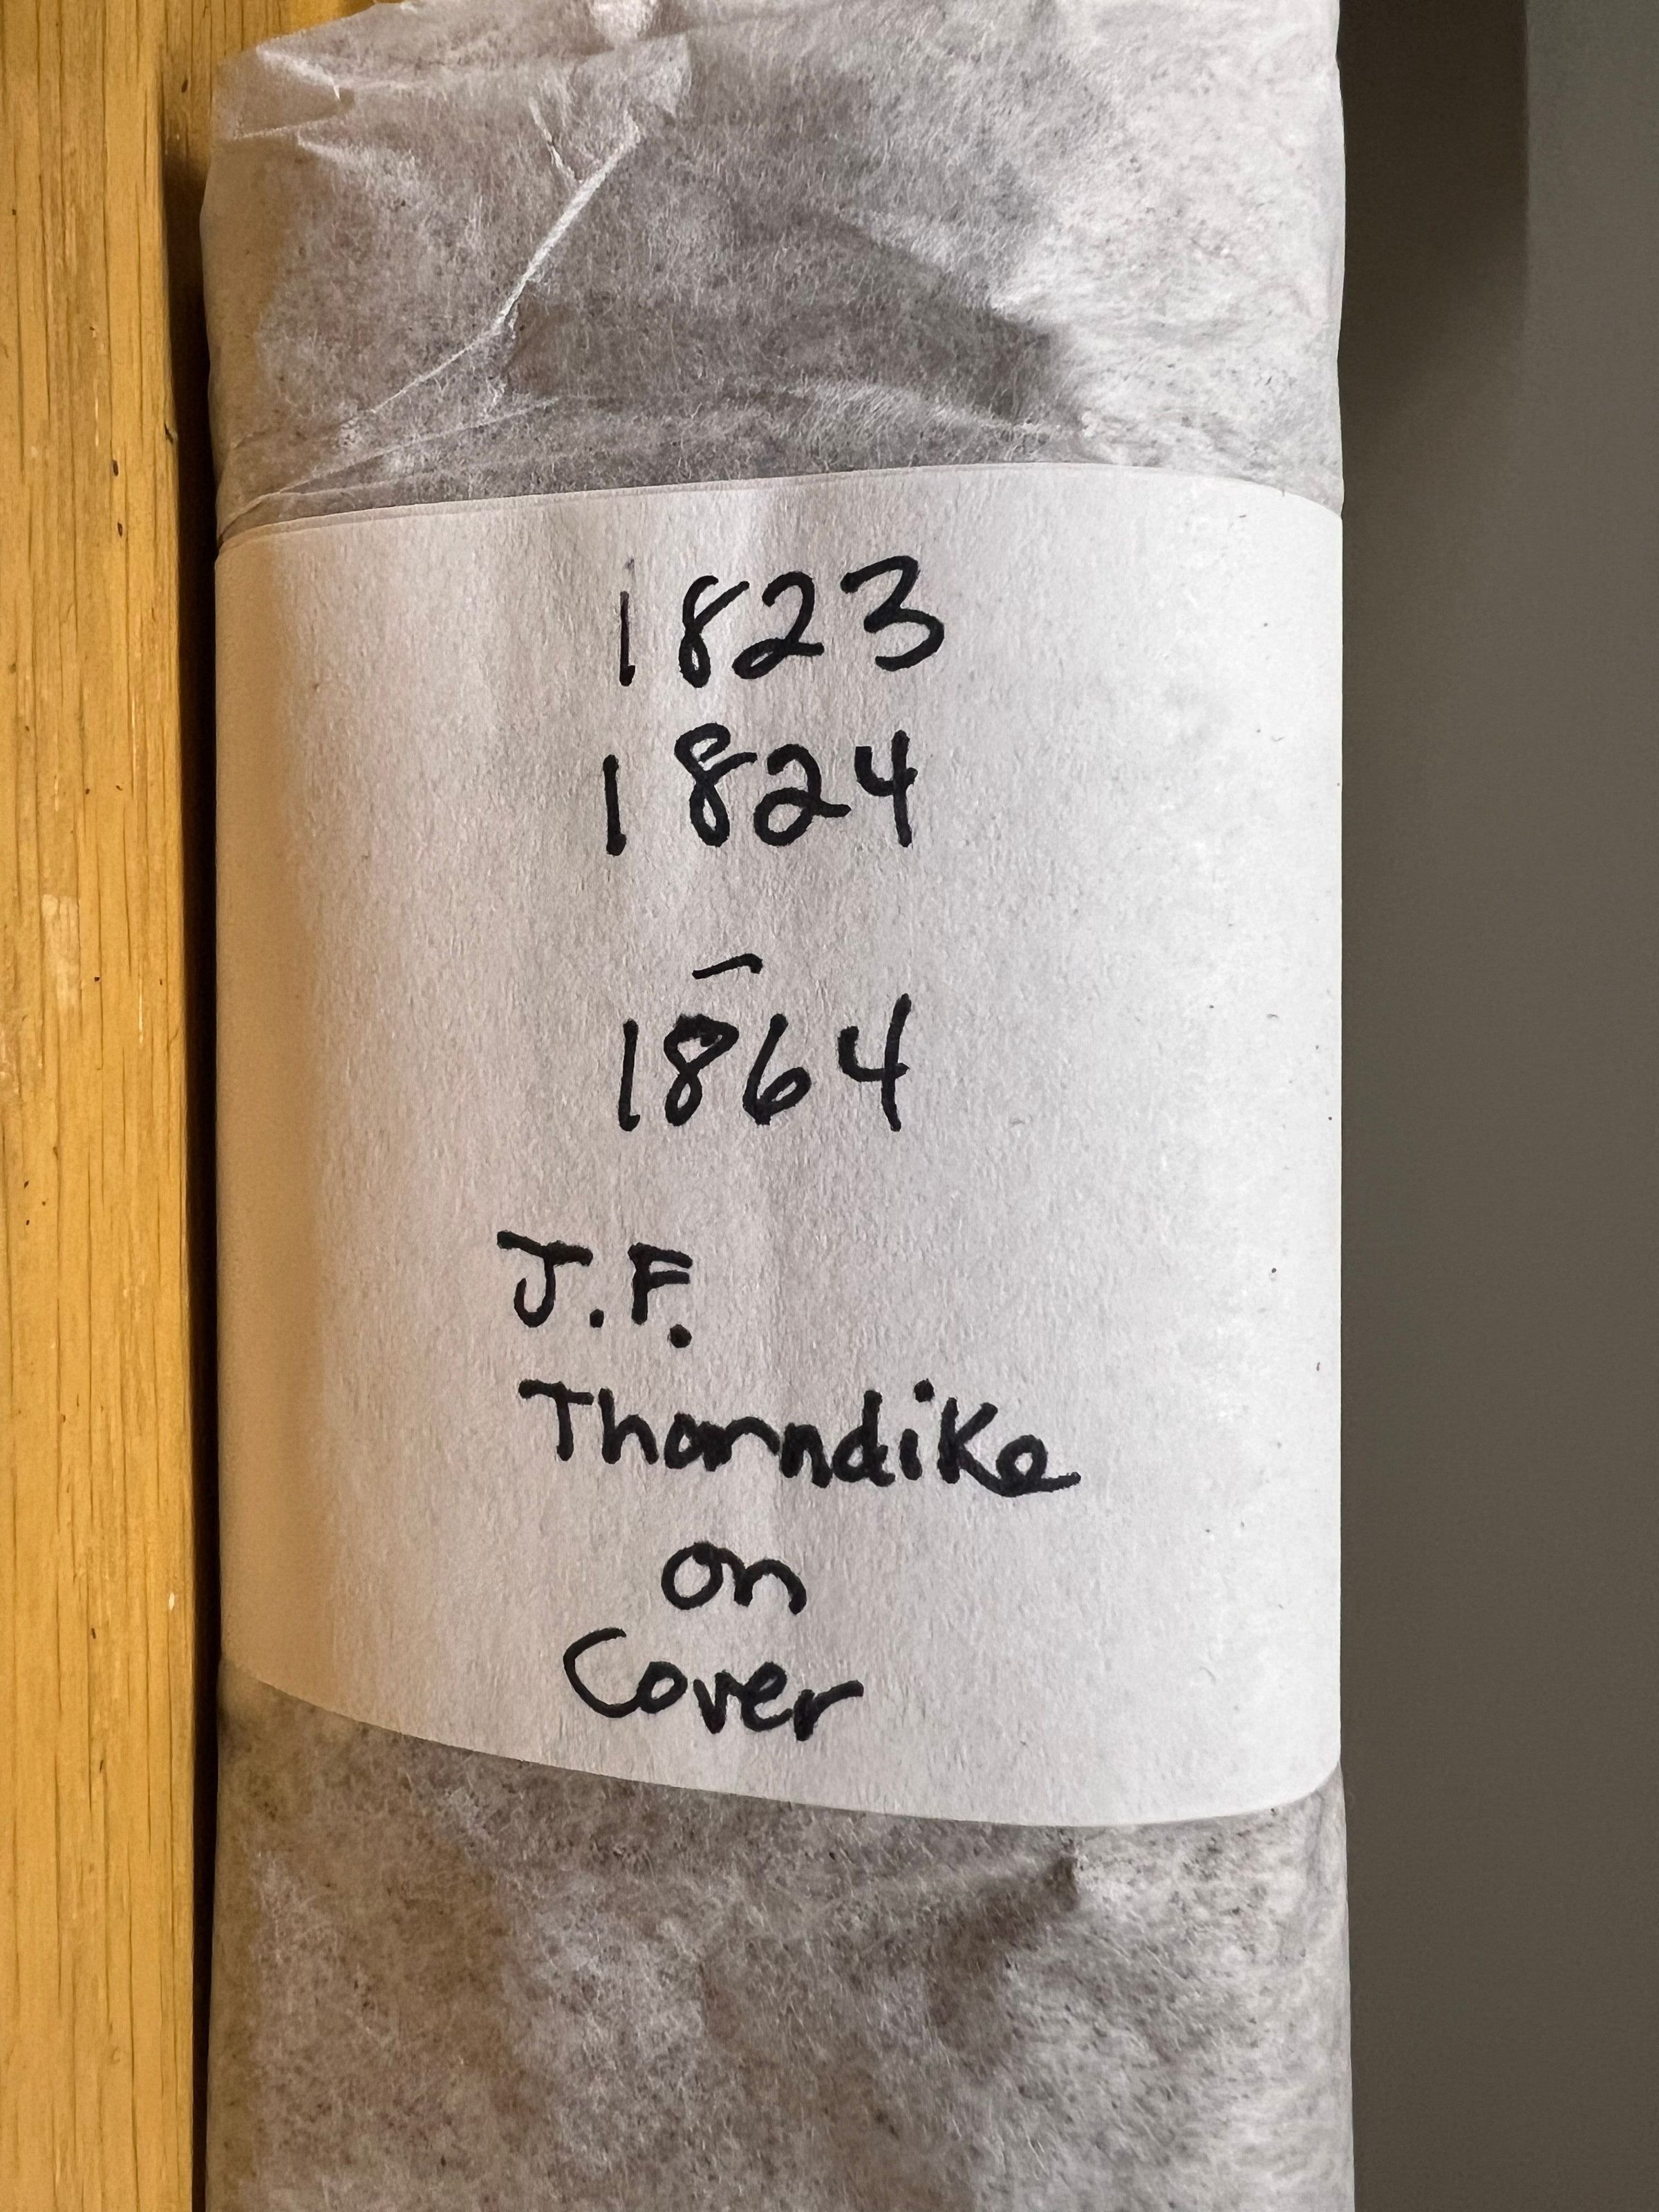 1823
1824
-
1864
J.F.
Thorndike
on
Cover